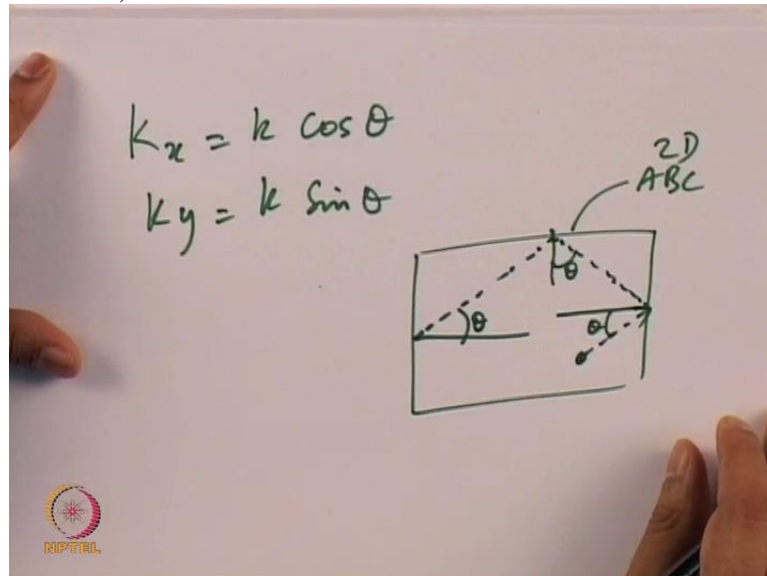 Kx = k cos θ
Ky = k Sin θ
2D
ABC
θ
θ
θ
NPTEL